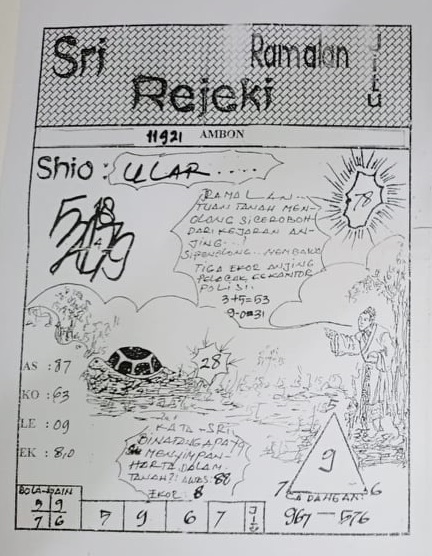 Sri
Ramalan
JITU
Rejeki
11921 AMBON
Shio : ULAR.....
78
RAMALAN...
TUAN TANAH MEN-
OLONG SICEROBOH
DARI KEJARAN AN-
JING...!
SIPENOLONG... MEMBAWA
TIGA EKOR ANJING
PELACAK KEKANTOR
POLISI:
3+5=53
9-0=31
28
AS : 87
KO : 63
LE : 09
EK : 8,0
KATA-SRI
BINATANG APA YG
MENYIMPAN-
HARTA DALAM-
TANAH?! AWAS: 88
EKOR 8
5
9
7 6
CADANGAN
967 - 576
BOLA-JAIN
9 9
7 6
7 9 6 7 JITU